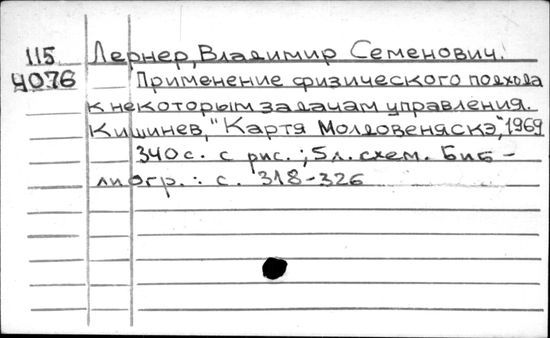 115 Лернер, Владимир Семенович.
4076 Применение физического подхода
к некоторым задачам управления.
Кишинев, "Картя Молдовеняскэ", 1969
340 с. с рис.; 5 л. схем. Биб-
лиогр.: с. 318-326